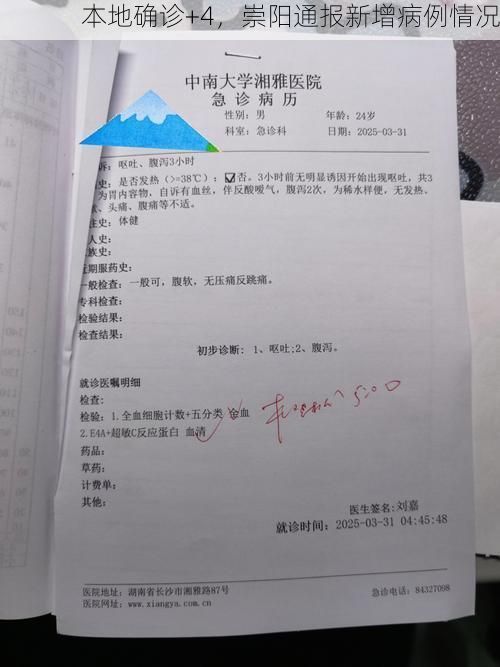 本地确诊+4，崇阳通报新增病例情况
中南大学湘雅医院
急 诊 病 历
性别：男 年龄：24岁
科室：急诊科 日期：2025-03-31
诉：呕吐、腹泻3小时
史：是否发热（>=38℃）：☑否。3小时前无明显诱因开始出现呕吐，共3
为胃内容物，自诉有血丝，伴反酸嗳气，腹泻2次，为稀水样便，无发热、
、头痛、腹痛等不适。
往史：体健
人史：
族史：
近期服药史：
一般检查：一般可，腹软，无压痛反跳痛。
专科检查：
检验结果：
检查结果：
初步诊断：1、呕吐;2、腹泻。
就诊医嘱明细
检查：
检验：1.全血细胞计数+五分类 全血
2.E4A+超敏C反应蛋白 血清
药品：
草药：
计费单：
其他：
医生签名:刘嘉
就诊时间：2025-03-31 04:45:48
医院地址：湖南省长沙市湘雅路87号 急诊电话：84327098
医院网址：www.xiangya.com.cn